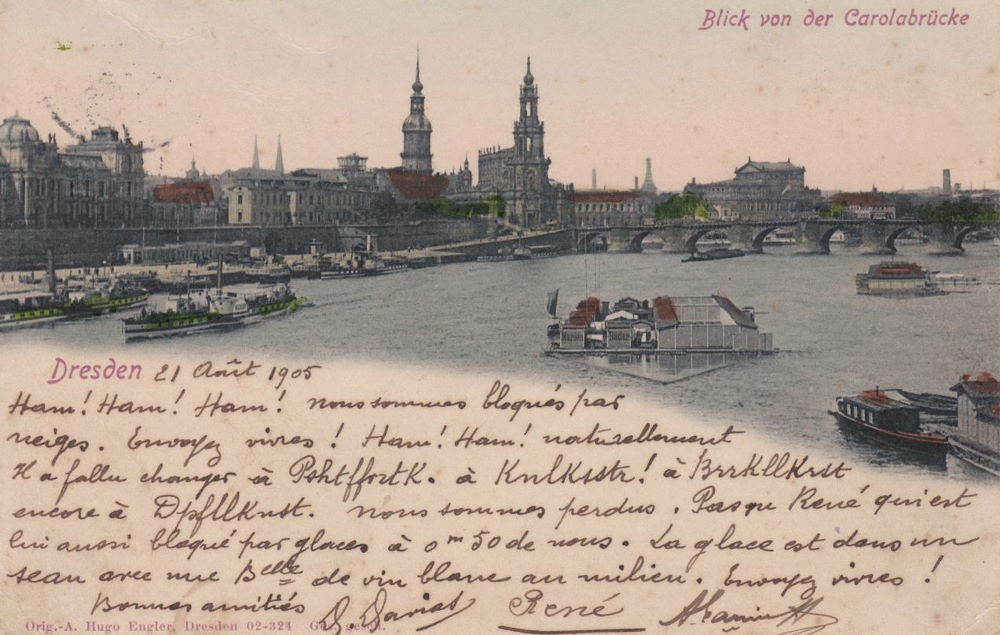 Blick von der Carolabrücke
Dresden 21 Août 1905
Ham! Ham! Ham! nous sommes bloqués par
neiges. Envoyez vivres! Ham! Ham! naturellement
Il a fallu changer à Pshtffrtk. à Knlksstr! à BrrkLLKrst
encore à DpfLLKnst. nous sommes perdus. Pas vu René qui est
lui aussi bloqué par glaces à 0m50 de nous. La glace est dans un
seau avec une Belle de vin blanc au milieu. Envoyez vivres!
Bonnes amitiés
René
Orig.-A. Hugo Engler, Dresden 02-324 Ges. gesch.